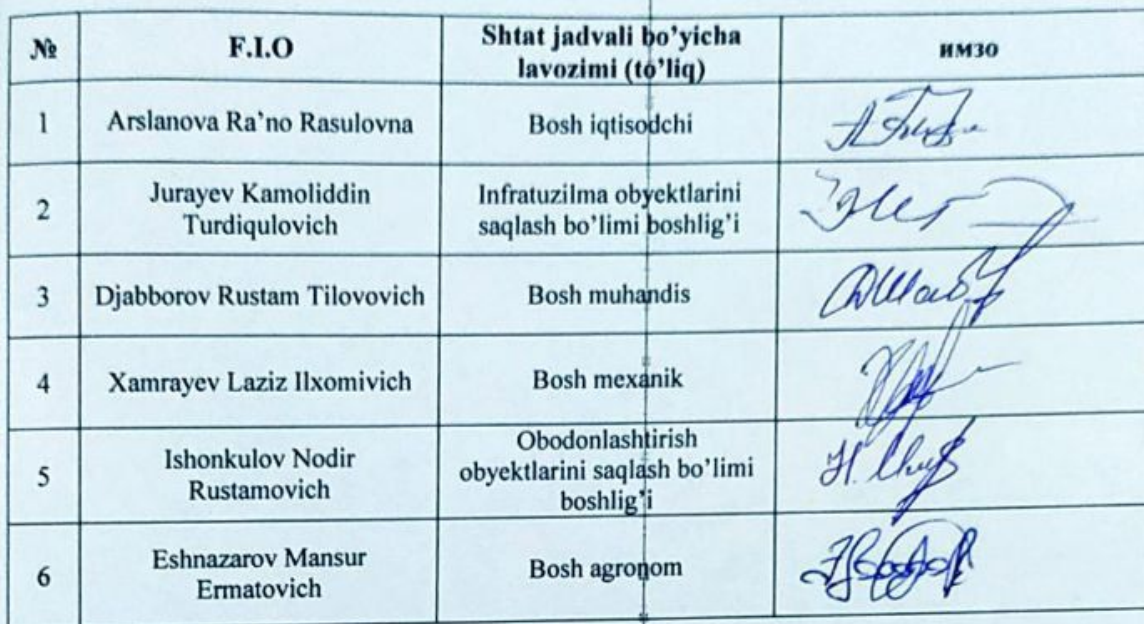 № F.I.O Shtat jadvali bo’yicha
lavozimi (to’liq) имзо
1 Arslanova Ra’no Rasulovna Bosh iqtisodchi
2 Jurayev Kamoliddin
Turdiqulovich Infratuzilma obyektlarini
saqlash bo’limi boshlig’i
3 Djabborov Rustam Tilovovich Bosh muhandis
4 Xamrayev Laziz Ilxomivich Bosh mexanik
5 Ishonkulov Nodir
Rustamovich Obodonlashtirish
obyektlarini saqlash bo’limi
boshlig’i
6 Eshnazarov Mansur
Ermatovich Bosh agronom